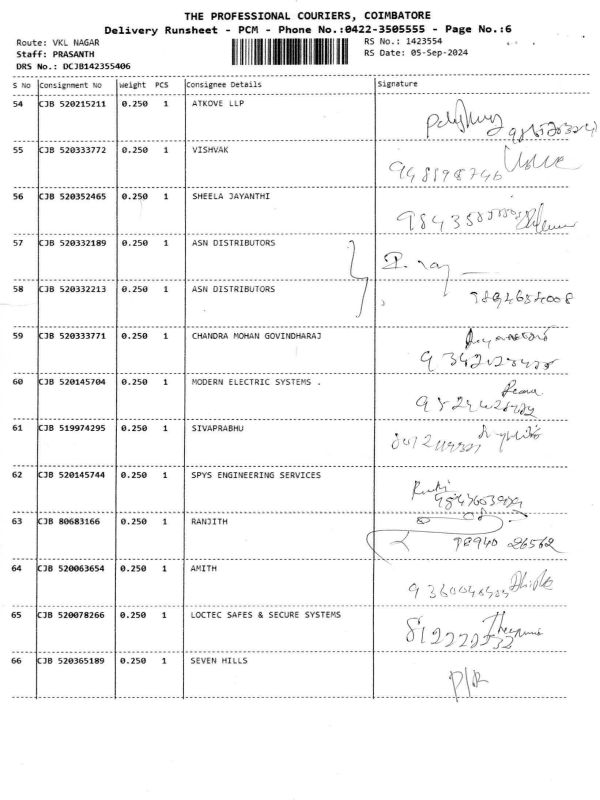 THE PROFESSIONAL COURIERS, COIMBATORE
Delivery Runsheet - PCM - Phone No.:0422-3505555 - Page No.:6
Route: VKL NAGAR RS No.: 1423554
Staff: PRASANTH RS Date: 05-Sep-2024
DRS No.: DCJB142355406
S No Consignment No Weight PCS Consignee Details Signature
54 CJB 520215211 0.250 1 ATKOVE LLP
55 CJB 520333772 0.250 1 VISHVAK
56 CJB 520352465 0.250 1 SHEELA JAYANTHI
57 CJB 520332189 0.250 1 ASN DISTRIBUTORS
58 CJB 520332213 0.250 1 ASN DISTRIBUTORS
59 CJB 520333771 0.250 1 CHANDRA MOHAN GOVINDHARAJ
60 CJB 520145704 0.250 1 MODERN ELECTRIC SYSTEMS .
61 CJB 519974295 0.250 1 SIVAPRABHU
62 CJB 520145744 0.250 1 SPYS ENGINEERING SERVICES
63 CJB 80683166 0.250 1 RANJITH 98940 26562
64 CJB 520063654 0.250 1 AMITH
65 CJB 520078266 0.250 1 LOCTEC SAFES & SECURE SYSTEMS
66 CJB 520365189 0.250 1 SEVEN HILLS